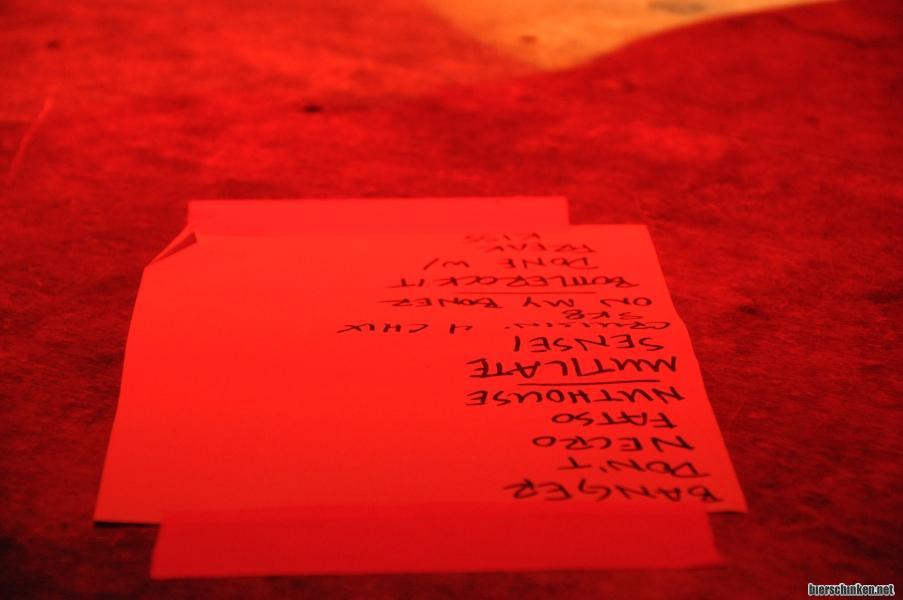 BANGER
DON'T
NEGRO
FATSO
NUTHOUSE
MUTILATE
SENSEI
CRUISIN' 4 CHIX
SK8
ON MY BONER
BOTTLEROCKIT
DONE W/
FREAK
KISS
bierschinken.net